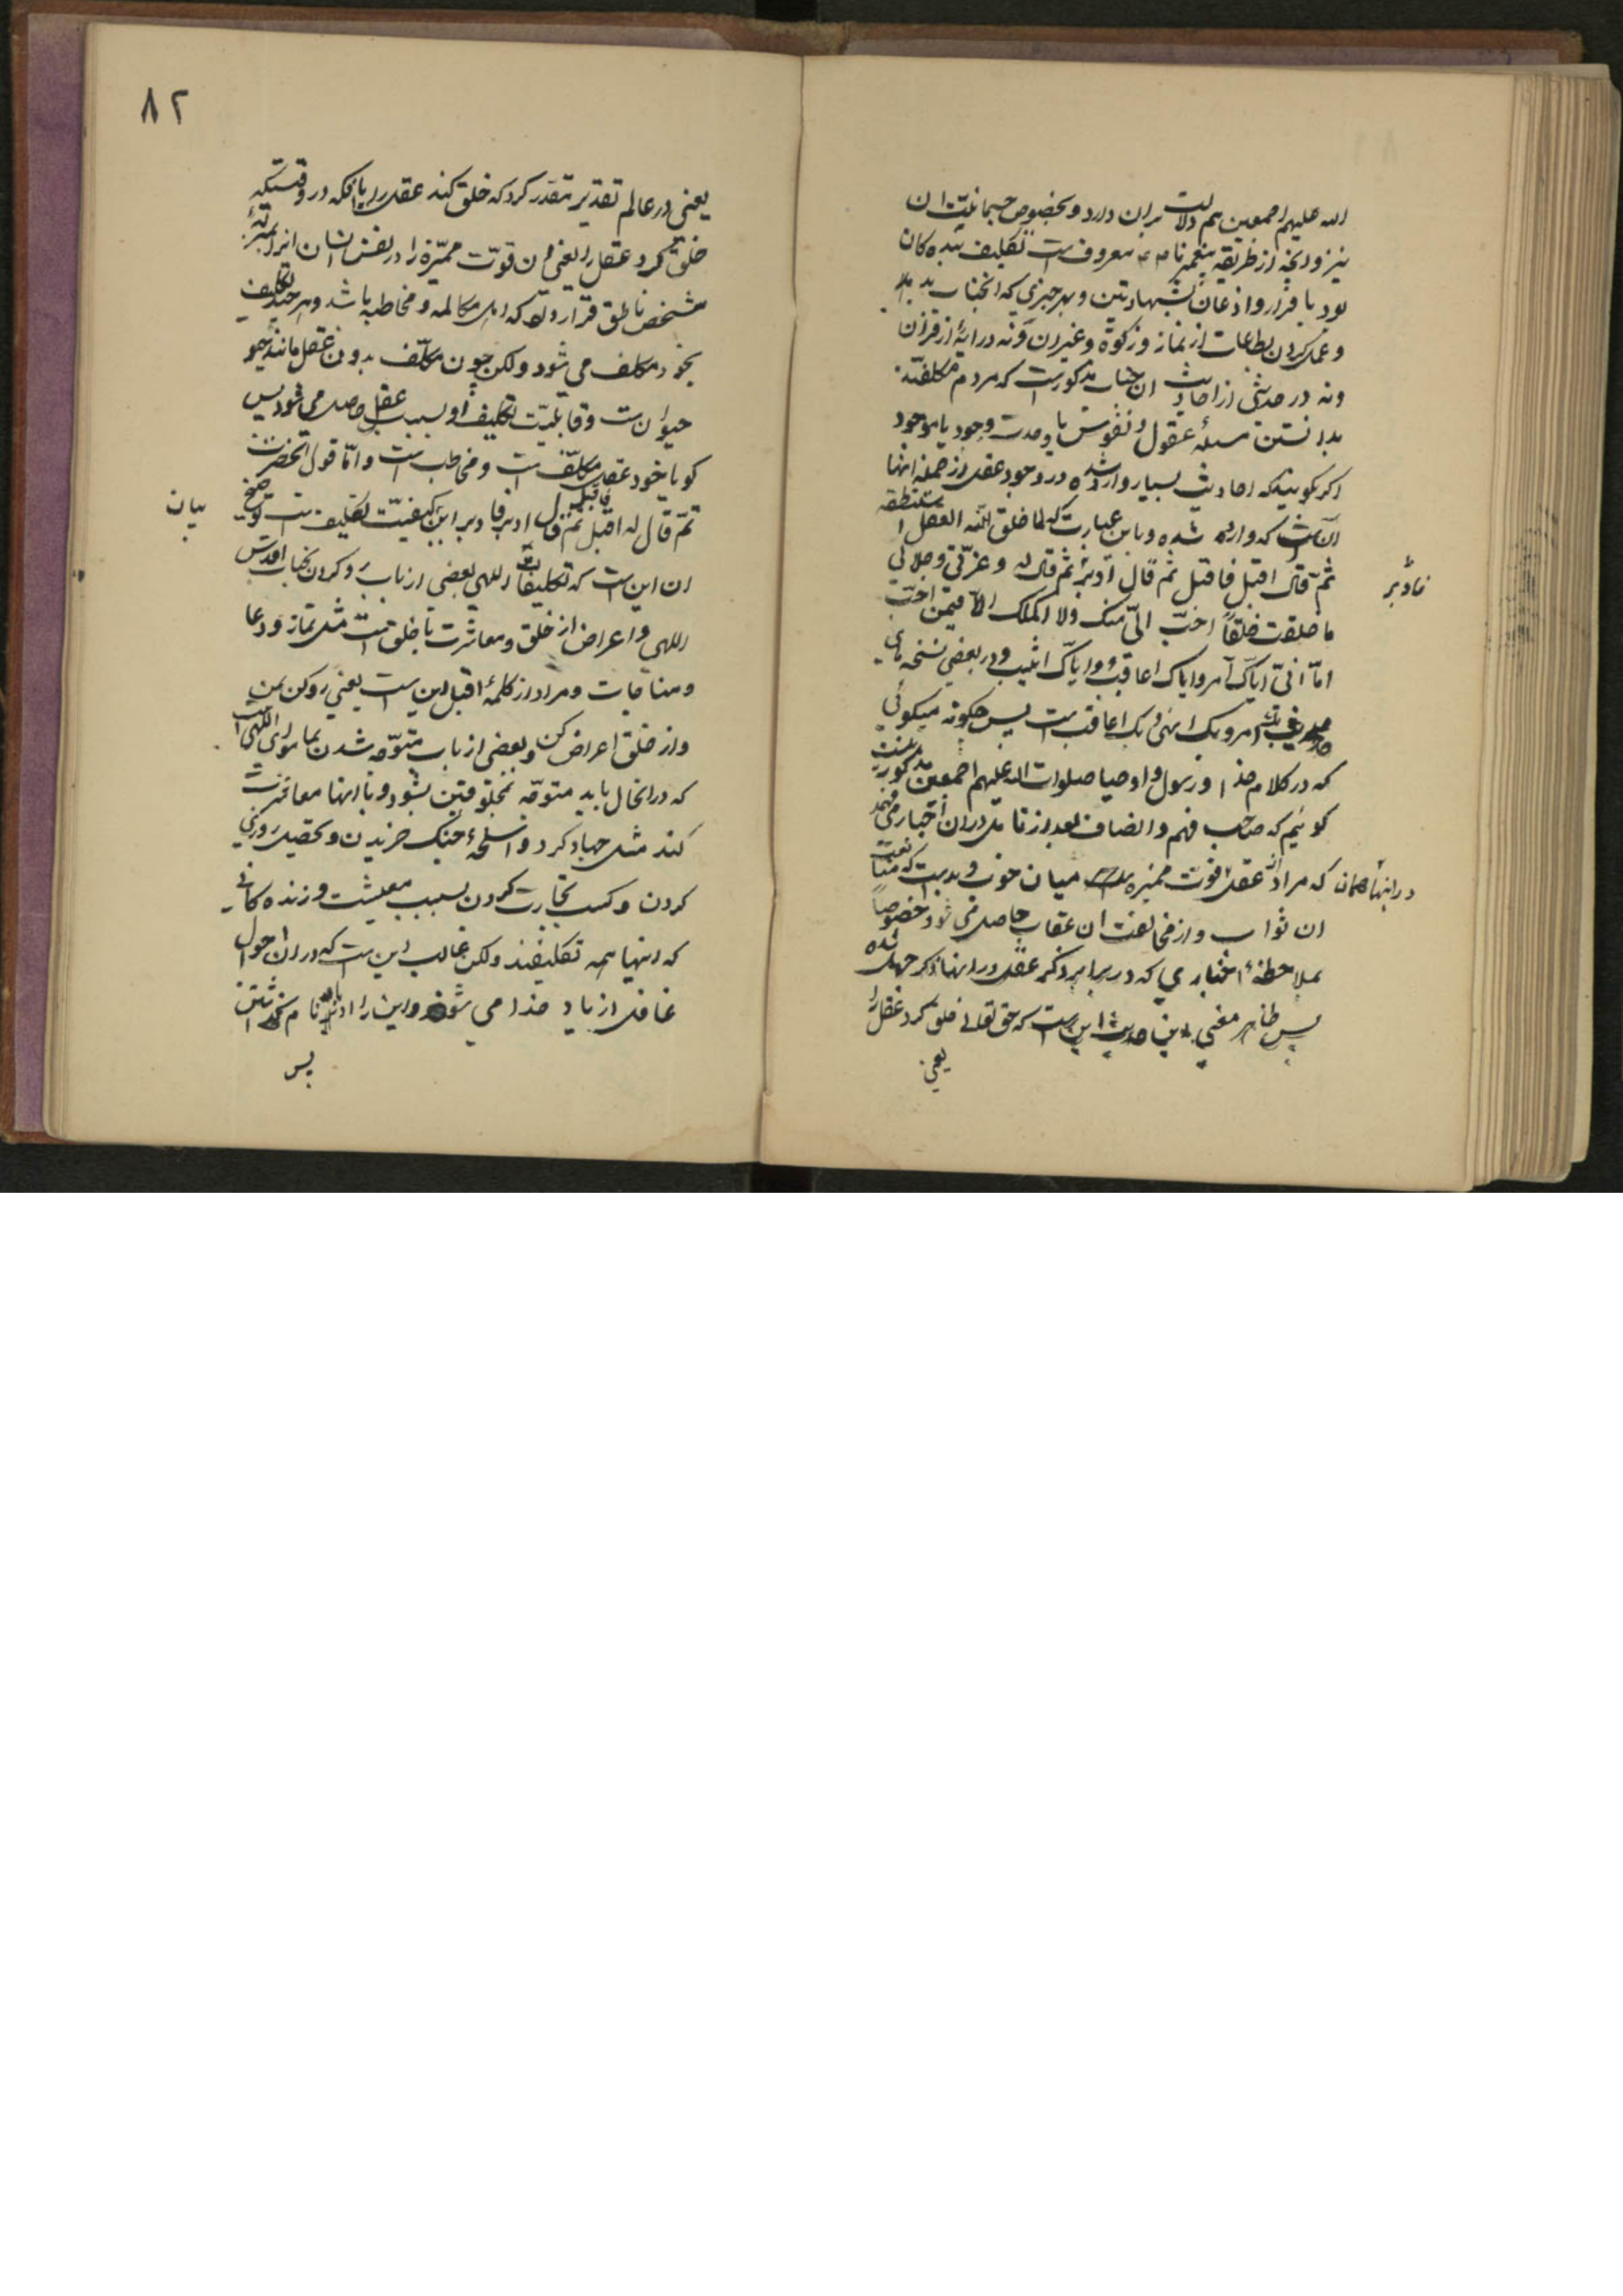 الله علیهم اجمعین هم دلالت بران دارد و بخصوص جسمانیّت ان
نیز و انچه از طریقه پیغمبر ما معروف است تکلیف بنده کان
بود باقرار و اذعان بشهادتین و بهر چیزی که انجناب بد
و عمل کردن بطاعات از نماز و زکوة و غیر ان و نه در ایهٔ از قران
و نه در حدیثی از احادیث ان جناب مذکور است که مردم مکلفند
بدانستن مسئلهٔ عقول و نفوس با وحدت وجود یا موجود
اکر بکویند که احادیث بسیار وارد شده در وجود عقل از جملهٔ انها
آنست که وارد شده و باین عبارت که لما خلق الله العقل استنطقه
ثمّ قال اقبل فاقبل ثم قال ادبر ثم قال له و عزّتی و جلالی
فادبر
ما خلقت خلقاً احبّ الیّ منک ولا اکملک الّا فیمن احبّ
امّا انّی ایّاک آمر و ایاک اعاقب و ایاک اثیب و در بعضی نسخه های
امر و بک انهی و بک اعاقب است پس چکونه میکوئی
که در کلام خدا و رسول و اوصیا صلوات الله علیهم اجمعین مذکور نیست
کوئیم که صاحب فهم و انصاف بعد از تامل دران اخبار می فهمد
که مراد از عقل قوت ممیّزه میان خوب و بد است که متابعت
در انها همان
ان ثواب و از مخالفت ان عقاب حاصل می شود خصوصاً
بملاحظهٔ اخباری که در برابر ذکر عقل در انها ذکر جهل شده
پس ظاهر معنی این حدیث این است که حق تعالی خلق کرد عقل را
یعنی
۸۲
یعنی در عالم تقدیر مقدر کرد که خلق کند عقل را یا انکه در وقتیکه
خلق کرد عقل را یعنی ان قوّت ممیّزه را در نفس انسان انرا بمنزلهٔ
شخص ناطق قرار داد که اهل مکالمه و مخاطبه باشد و هر چند تکلیف
بخود مکلف می شود ولکن چون مکلّف بدون عقل مانند
حیوان است و قابلیّت تکلیف او بسبب عقل حاصل می شود پس
کویا خود عقل مکلّف است و مخاطب است و امّا قول انحضرت
ثمّ قال له اقبل فاقبل ثم قال ادبر فادبر این کیفیّت تکلیف است توضیح
بیان
ان این است که تکلیفات الهی بعضی از باب رو کردن بجناب اقدس
الهی و اعراض از خلق و معاشرت با خلق است مثل نماز و دعا
و مناجات و مراد از کلمهٔ اقبل این است یعنی رو کن بمن
و از خلق اعراض کن و بعضی از باب متوّجه شدن بماسوای الهی است
که در انحال باید متوّجه مخلوقین بشود و با انها معاشرت
کند مثل جهاد کردن و اسلحهٔ جنک خریدن و تحصیل روزی
کردن و کسب تجارت کردن بسبب معیشت و زنده کانی
که اینها همه تکلیفند ولکن غالب این است که دران احوال
غافل از یاد خدا می شوند و این را ادبار نام
پس